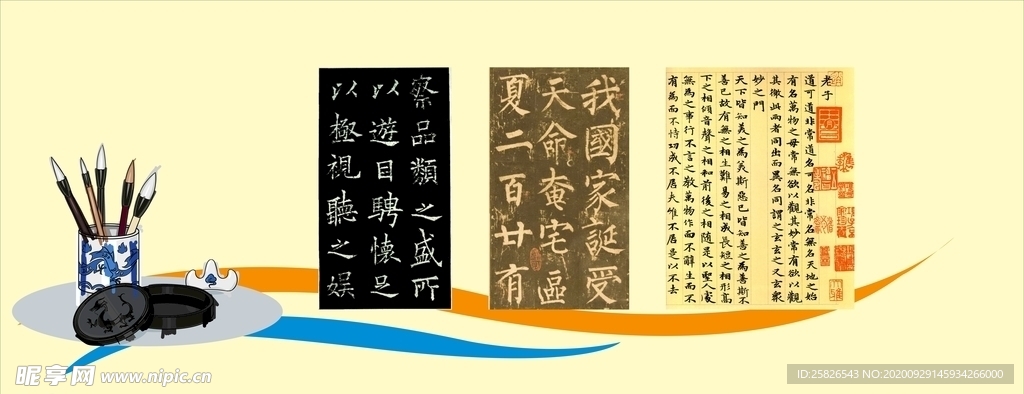 察品類之盛所
以遊目騁懷足
以極視聽之娱
我國家誕受
天命奄宅區
夏二百廿有
老子
道可道非常道名可名非常名無名天地之始
有名萬物之母常無欲以觀其妙常有欲以觀
其徼此兩者同出而異名同謂之玄玄之又玄衆
妙之門
天下皆知美之為美斯惡已皆知善之為善斯不
善已故有無之相生難易之相成長短之相形高
下之相傾音聲之相和前後之相随是以聖人處
無為之事行不言之教萬物作而不辭生而不
有為而不恃功成不居夫惟不居是以不去
昵享网 www.nipic.cn
ID:25826543 NO:20200929145934266000